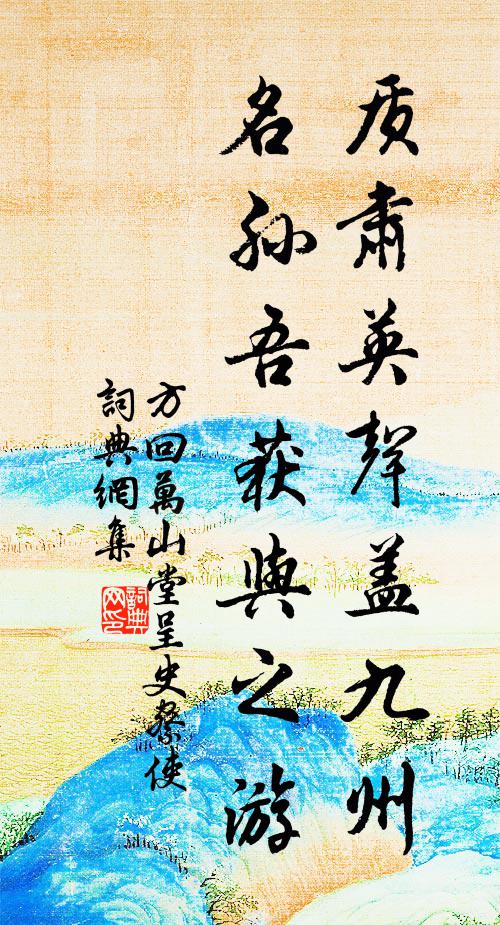 质肃英声盖九州
名孙吾获与之游
方回萬山堂呈史祭使
詞典網集
詞典網印